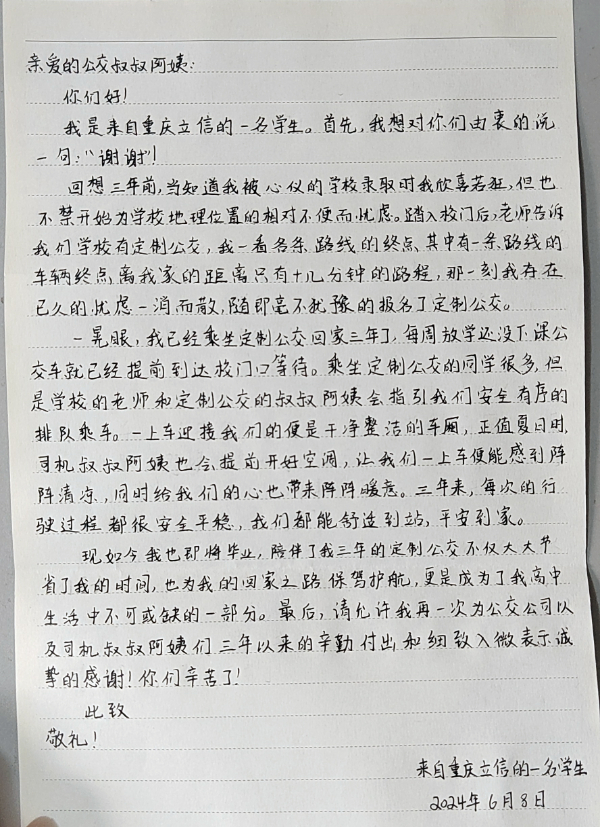 亲爱的公交叔叔阿姨：
你们好！
我是来自重庆立信的一名学生。首先，我想对你们由衷的说
一句：“谢谢”！
回想三年前，当知道我被心仪的学校录取时我欣喜若狂，但也
不禁开始为学校地理位置的相对不便而忧虑。踏入校门后，老师告诉
我们学校有定制公交，我一看各条路线的终点，其中有一条路线的
车辆终点离我家的距离只有十几分钟的路程，那一刻我存在
已久的忧虑一消而散，随即毫不犹豫的报名了定制公交。
一晃眼，我已经乘坐定制公交回家三年了，每周放学还没下课公
交车就已经提前到达校门口等待。乘坐定制公交的同学很多，但
是学校的老师和定制公交的叔叔阿姨会指引我们安全有序的
排队乘车。一上车迎接我们的便是干净整洁的车厢，正值夏日时，
司机叔叔阿姨也会提前开好空调，让我们一上车便能感到阵
阵清凉，同时给我们的心也带来阵阵暖意。三年来，每次的行
驶过程都很安全平稳，我们都能舒适到站，平安到家。
现如今我也即将毕业，陪伴了我三年的定制公交不仅大大节
省了我的时间，也为我的回家之路保驾护航，更是成为了我高中
生活中不可或缺的一部分。最后，请允许我再一次为公交公司以
及司机叔叔阿姨们三年以来的辛勤付出和细致入微表示诚
挚的感谢！你们辛苦了！
此致
敬礼！
来自重庆立信的一名学生
2024年6月8日